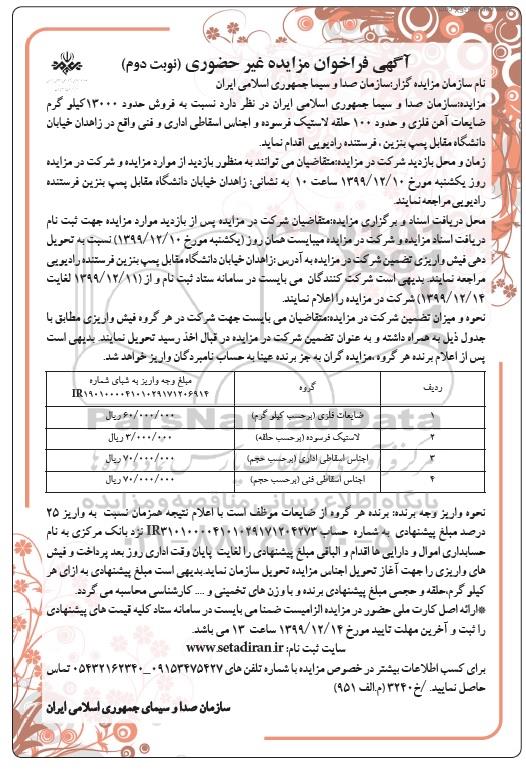 آگهی فراخوان مزایده غیر حضوری (نوبت دوم)
نام سازمان مزایده گزار:سازمان صدا و سیما جمهوری اسلامی ایران
مزایده:سازمان صدا و سیما جمهوری اسلامی ایران در نظر دارد نسبت به فروش حدود ۱۳۰۰۰کیلو گرم
ضایعات آهن فلزی و حدود ۱۰۰ حلقه لاستیک فرسوده و اجناس اسقاطی اداری و فنی واقع در زاهدان خیابان
دانشگاه مقابل پمپ بنزین ، فرستنده رادیویی اقدام نماید.
زمان و محل بازدید شرکت در مزایده:متقاضیان می توانند به منظور بازدید از موارد مزایده و شرکت در مزایده
روز یکشنبه مورخ ۱۳۹۹/۱۲/۱۰ ساعت ۱۰ به نشانی: زاهدان خیابان دانشگاه مقابل پمپ بنزین فرستنده
رادیویی مراجعه نمایند.
محل دریافت اسناد و برگزاری مزایده:متقاضیان شرکت در مزایده پس از بازدید موارد مزایده جهت ثبت نام
دریافت اسناد مزایده و شرکت در مزایده میبایست همان روز (یکشنبه مورخ ۱۳۹۹/۱۲/۱۰) نسبت به تحویل
دهی فیش واریزی تضمین شرکت در مزایده به آدرس :زاهدان خیابان دانشگاه مقابل پمپ بنزین فرستنده رادیویی
مراجعه نمایند. بدیهی است شرکت کنندگان می بایست در سامانه ستاد ثبت نام و از (۱۳۹۹/۱۲/۱۱ لغایت
۱۳۹۹/۱۲/۱۴) شرکت در مزایده را اعلام نمایند.
نحوه و میزان تضمین شرکت در مزایده:متقاضیان می بایست جهت شرکت در هر گروه فیش واریزی مطابق با
جدول ذیل به همراه داشته و به عنوان تضمین شرکت در مزایده در قبال اخذ رسید تحویل نمایند. بدیهی است
پس از اعلام برنده هر گروه ،مزایده گران به جز برنده عینا به حساب نامبردگان واریز خواهد شد.
ردیف گروه مبلغ وجه واریز به شبای شماره
IR۱۹۰۱۰۰۰۰۴۱۰۱۰۲۹۱۷۱۲۰۶۹۱۴
۱ ضایعات فلزی (برحسب کیلو گرم) ۶۰/۰۰۰/۰۰۰ ریال
۲ لاستیک فرسوده (برحسب حلقه) ۳/۰۰۰/۰۰۰ ریال
۳ اجناس اسقاطی اداری (برحسب حجم) ۷۰/۰۰۰/۰۰۰ ریال
۴ اجناس اسقاطی فنی (برحسب حجم) ۷۰/۰۰۰/۰۰۰ ریال
ParsNamadData
پایگاه اطلاع رسانی مناقصه و مزایده
نحوه واریز وجه برنده: برنده هر گروه از ضایعات موظف است با اعلام نتیجه همزمان نسبت به واریز ۲۵
درصد مبلغ پیشنهادی به شماره حساب نزد بانک مرکزی به نام
حسابداری اموال و دارایی ها اقدام و الباقی مبلغ پیشنهادی را لغایت پایان وقت اداری روز بعد پرداخت و فیش
های واریزی را جهت آغاز تحویل اجناس مزایده تحویل سازمان نماید.بدیهی است مبلغ پیشنهادی به ازای هر
کیلو گرم،حلقه و حجمی مبلغ پیشنهادی برنده و با وزن های تخمینی و .... کارشناسی محاسبه می گردد.
*ارائه اصل کارت ملی حضور در مزایده الزامیست ضمنا می بایست در سامانه ستاد کلیه قیمت های پیشنهادی
را ثبت و آخرین مهلت تایید مورخ ۱۳۹۹/۱۲/۱۴ ساعت ۱۳ می باشد.
سایت ثبت نام: www.setadiran.ir
برای کسب اطلاعات بیشتر در خصوص مزایده با شماره تلفن های ۰۹۱۵۳۴۷۵۴۲۷_۰۵۴۳۲۱۶۲۳۴۰ تماس
حاصل نمایید. /خ۳۲۴۰ (م.الف ۹۵۱)
سازمان صدا و سیمای جمهوری اسلامی ایران